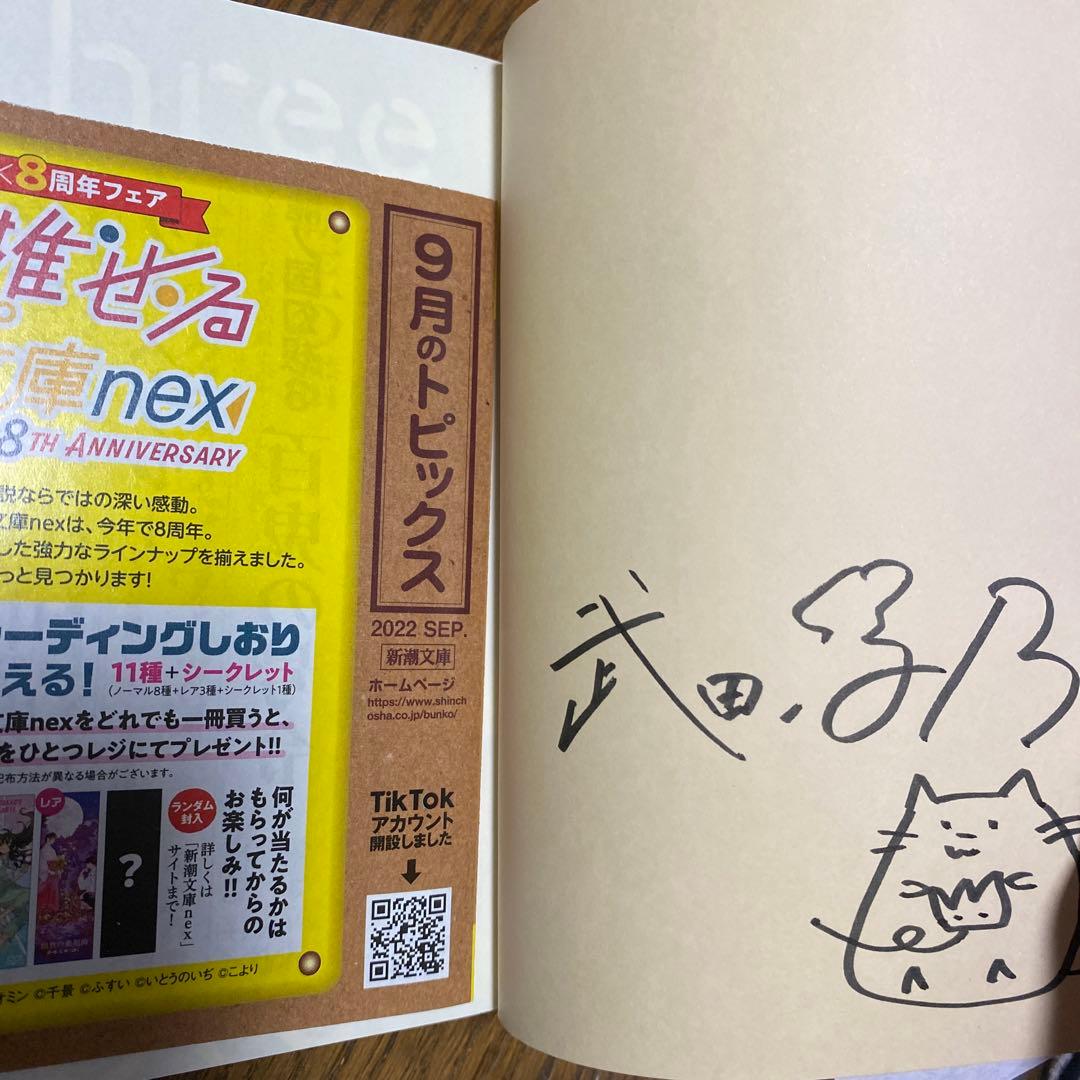 ×8周年フェア
推せる
文庫nex
8TH ANNIVERSARY
説ならではの深い感動。
文庫nexは、今年で8周年。
した強力なラインナップを揃えました。
っと見つかります!
ーディングしおり
える! 11種+シークレット
(ノーマル8種+レア3種+シークレット1種)
文庫nexをどれでも一冊買うと、
をひとつレジにてプレゼント!!
配布方法が異なる場合がございます。
レア
?
ランダム
封入
何が当たるかは
もらってからの
お楽しみ!!
詳しくは
「新潮文庫nex」
サイトまで!
オミン ©千景 ©ふすい ©いとうのいぢ ©こより
9月のトピックス
2022 SEP.
新潮文庫
ホームページ
https://www.shinch
osha.co.jp/bunko/
TikTok
アカウント
開設しました
武田
乃